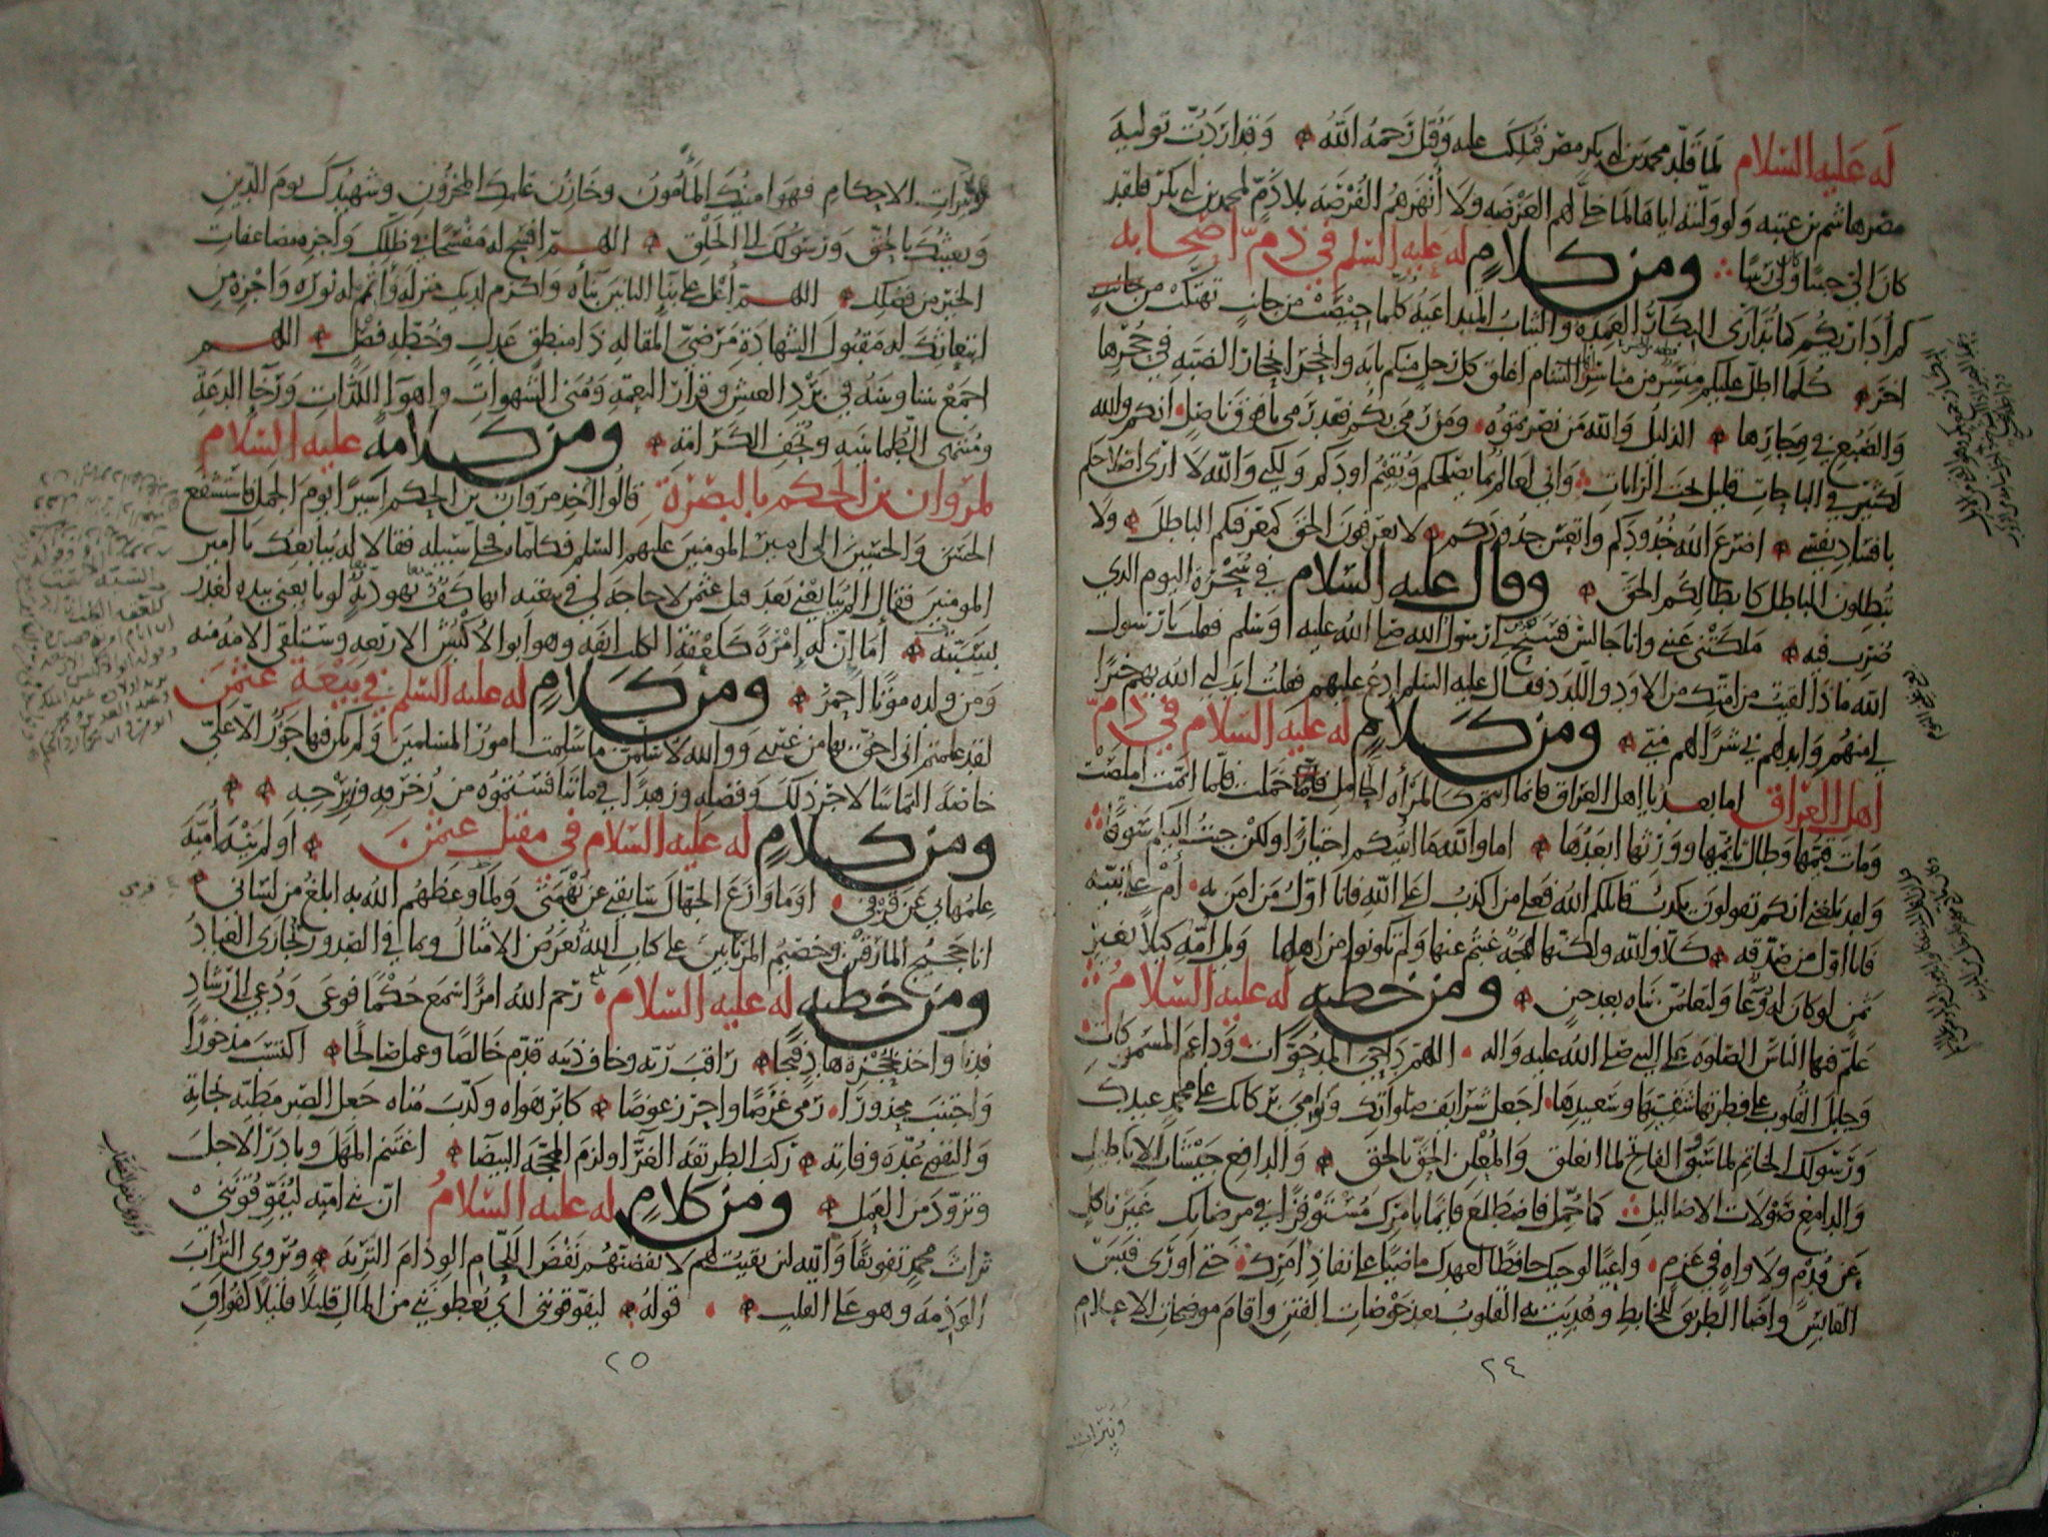 له عليه السلام لما قلد محمد بن ابي بكر مصر فملكت عليه وقتل رحمه الله وقد اردت تولية
مصر هاشم بن عتبه ولو وليته اياها لما خلى لهم العرصه ولا انهزهم الفرصه بلا ذم لمحمد بن ابي بكر فلقد
كان الي حبيبا وكان لي ربيبا ومن كلام له عليه السلم في ذم اصحابه
كم أداريكم كما تدارى البكار العمده والثياب المتداعيه كلما حيصت من جانب تهتكت من جانب
اخر كلما اطل عليكم منسر من مناسر الشام اغلق كل رجل منكم بابه وانجحر انجحار الضبه في جحرها
والضبع في وجارها الذليل والله من نصرتموه ومن رمى بكم فقد رمي بافوق ناصل انكم والله
لكثير في الباحات قليل تحت الرايات واني لعالم بما يصلحكم ويقيم اودكم ولكني والله لا ارى اصلاحكم
بافساد نفسي اضرع الله خدودكم واتعس جدودكم لا تعرفون الحق كمعرفتكم الباطل ولا
تبطلون الباطل كابطالكم الحق وقال عليه السلام في سحرة اليوم الذي
ضرب فيه ملكتني عيني وانا جالس فسنح لي رسول الله صلى الله عليه وسلم فقلت يا رسول
الله ماذا لقيت من امتك من الاود واللدد فقال عليه السلم ادع عليهم فقلت ابدلني الله بهم خيرا
لي منهم وابدلهم بي شرا لهم مني ومن كلام له عليه السلام في ذم
اهل العراق اما بعد يا اهل العراق فانما انتم كالمرأه الحامل حملت فلما اتمت املصت
ومات قيمها وطال تأيمها وورثها ابعدها اما والله ما اتيتكم اختيارا ولكن جئت اليكم سوقا
ولقد بلغني انكم تقولون يكذب قاتلكم الله فعلى من اكذب اعلى الله فانا اول من امن به أم على نبيه
فانا اول من صدقه كلا والله ولكنها لهجة غبتم عنها ولم تكونوا من اهلها ويل امه كيلا بغير
ثمن لو كان له وعا ولتعلمن نباه بعد حين ومن خطبه له عليه السلام
علم فيها الناس الصلوه على النبي صلى الله عليه واله اللهم داحي المدحوات وداعم المسموكات
وجابل القلوب على فطرتها شقيها وسعيدها اجعل شرايف صلواتك ونوامي بركاتك على محمد عبدك
ورسولك الخاتم لما سبق والفاتح لما انغلق والمعلن الحق بالحق والدافع جيشات الاباطيل
والدامغ صولات الاضاليل كما حمل فاضطلع قايما بامرك مستوفزا في مرضاتك غير ناكل
عن قدم ولا واه في عزم واعيا لوحيك حافظا لعهدك ماضيا على نفاذ امرك حتى اورى قبس
القابس واضا الطريق للخابط وهديت به القلوب بعد خوضات الفتن واقام موضحات الاعلام
٢٤
ونيرات
ونيرات الاحكام فهو امينك المأمون وخازن علمك المخزون وشهيدك يوم الدين
وبعيثك بالحق ورسولك الى الخلق اللهم افسح له مفسحا في ظلك واجزه مضاعفات
الخير من فضلك اللهم أعل على بنا البانين بناه واكرم لديك منزله وأتمم له نوره واجزه من
ابتعاثك له مقبول الشهادة مرضي المقاله ذا منطق عدل وخطه فصل اللهم
اجمع بيننا وبينه في برد العيش وقرار النعمه ومنى الشهوات واهوا اللذات ورخا الدعة
ومنتهى الطمانينه وتحف الكرامة ومن كلامه عليه السلام
لمروان بن الحكم بالبصرة قالوا اخذ مروان بن الحكم اسيرا يوم الجمل فاستشفع
الحسن والحسين الى امير المومنين عليهم السلم فكلماه فخلى سبيله فقالا له يبايعك يا امير
المومنين فقال الم يبايعني بعد قتل عثمن لا حاجة لي في بيعته انها كف يهوديه لو بايعني بيده لغدر
بسبته أما ان له إمرة كلعقة الكلب انفه وهو ابو الاكبش الاربعه وستلقى الامه منه
ومن ولده موتا احمر ومن كلام له عليه السلم في بيعة عثمن
لقد علمتم اني احق بها من غيري ووالله لاسلمن ما سلمت امور المسلمين ولم يكن فيها جور الا علي
خاصة التماسا لاجر ذلك وفضله وزهدا في ما تنافستموه من زخرفه وزبرجه
ومن كلام له عليه السلام في مقتل عثمن اولم ينه أمية
علمها بي عن قرفي اوما وازع الجهال سابقتي عن تهمتي ولما وعظهم الله به ابلغ من لساني
انا حجيج المارقين وخصيم المرتابين على كتاب الله تعرض الامثال وبما في الصدور تجازى العباد
ومن خطبه له عليه السلام رحم الله امرأ سمع حكما فوعى ودعي الى رشاد
فدنا واخذ بحجزة هاد فنجا راقب ربه وخاف ذنبه قدم خالصا وعمل صالحا اكتسب مذخورا
واجتنب محذورا رمى غرضا واحرز عوضا كابر هواه وكذب مناه جعل الصبر مطية نجاته
والتقوى عدة وفاته ركب الطريقه الغرا ولزم المحجه البيضا اغتنم المهل وبادر الاجل
وتزود من العمل ومن كلام له عليه السلام ان بني اميه ليفوقونني
تراث محمد تفويقا والله لئن بقيت لهم لانفضنهم نفض اللحام الوذام التربه ويروى التراب
الوذمه وهو على القلب قوله ليفوقونني اي يعطونني من المال قليلا قليلا كفواق
٢٥